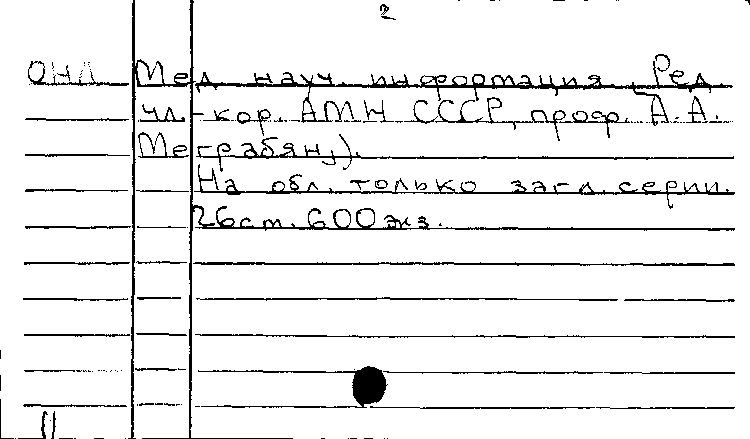 2
ОНЛ Мед. науч. информация. Ред.
чл.-кор. АМН СССР, проф. А.А.
Меграбян,).
На обл. только загл. серии.
26 ст. 600 экз.
11